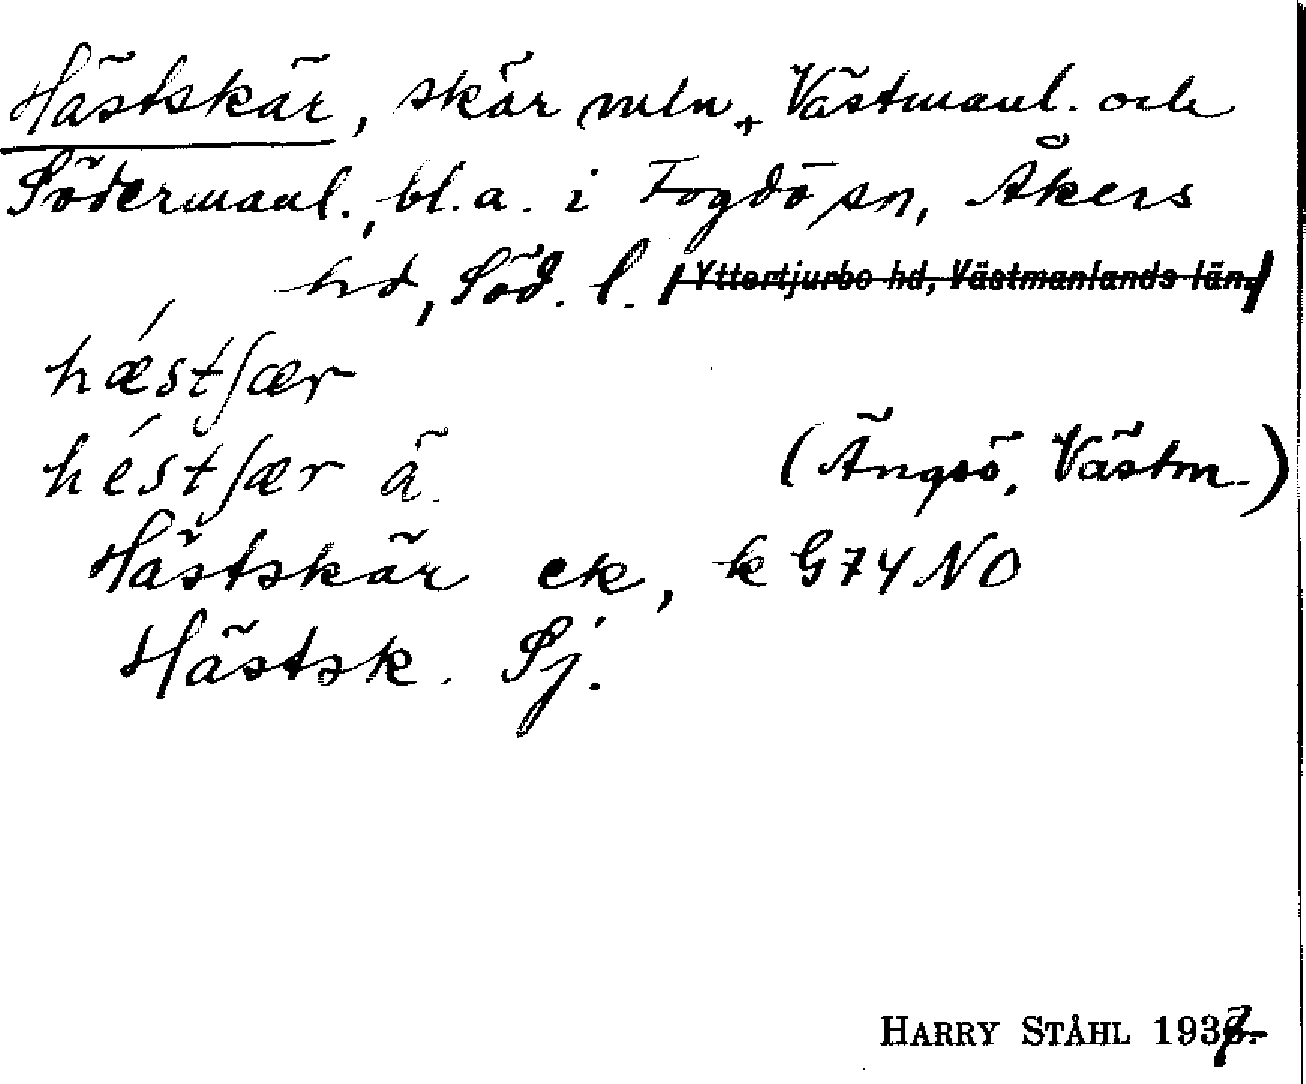 Hästskär, skär mln Västmanl. och
Södermanl., bl.a. i Fogdö sn, Åkers
hd, Söd. l. (Yttertjurbo hd, Västmanlands län.)
hǽstʃær
héstʃær ä. (Ängsö, Västm.)
Hästskär ek, k G74NO
Hästsk. Sj.
HARRY STÅHL 1937